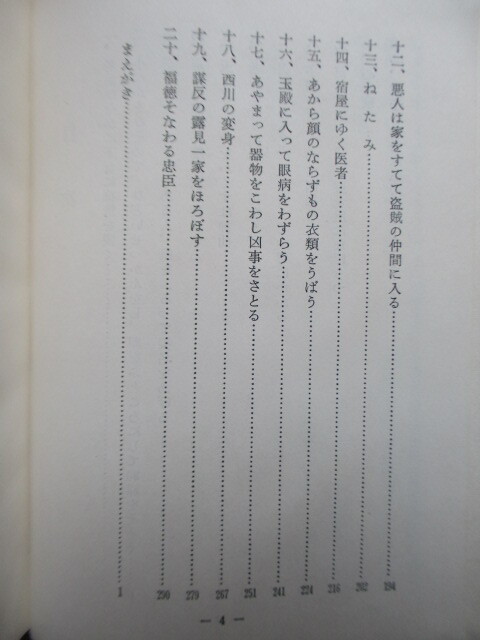 十二、悪人は家をすてて盗賊の仲間に入る……194
十三、ねたみ……202
十四、宿屋にゆく医者……216
十五、あから顔のならずもの衣類をうばう……224
十六、玉殿に入って眼病をわずらう……241
十七、あやまって器物をこわし凶事をさとる……251
十八、西川の変身……267
十九、謀反の露見一家をほろぼす……279
二十、福徳そなわる忠臣……290
まえがき……1
— 4 —